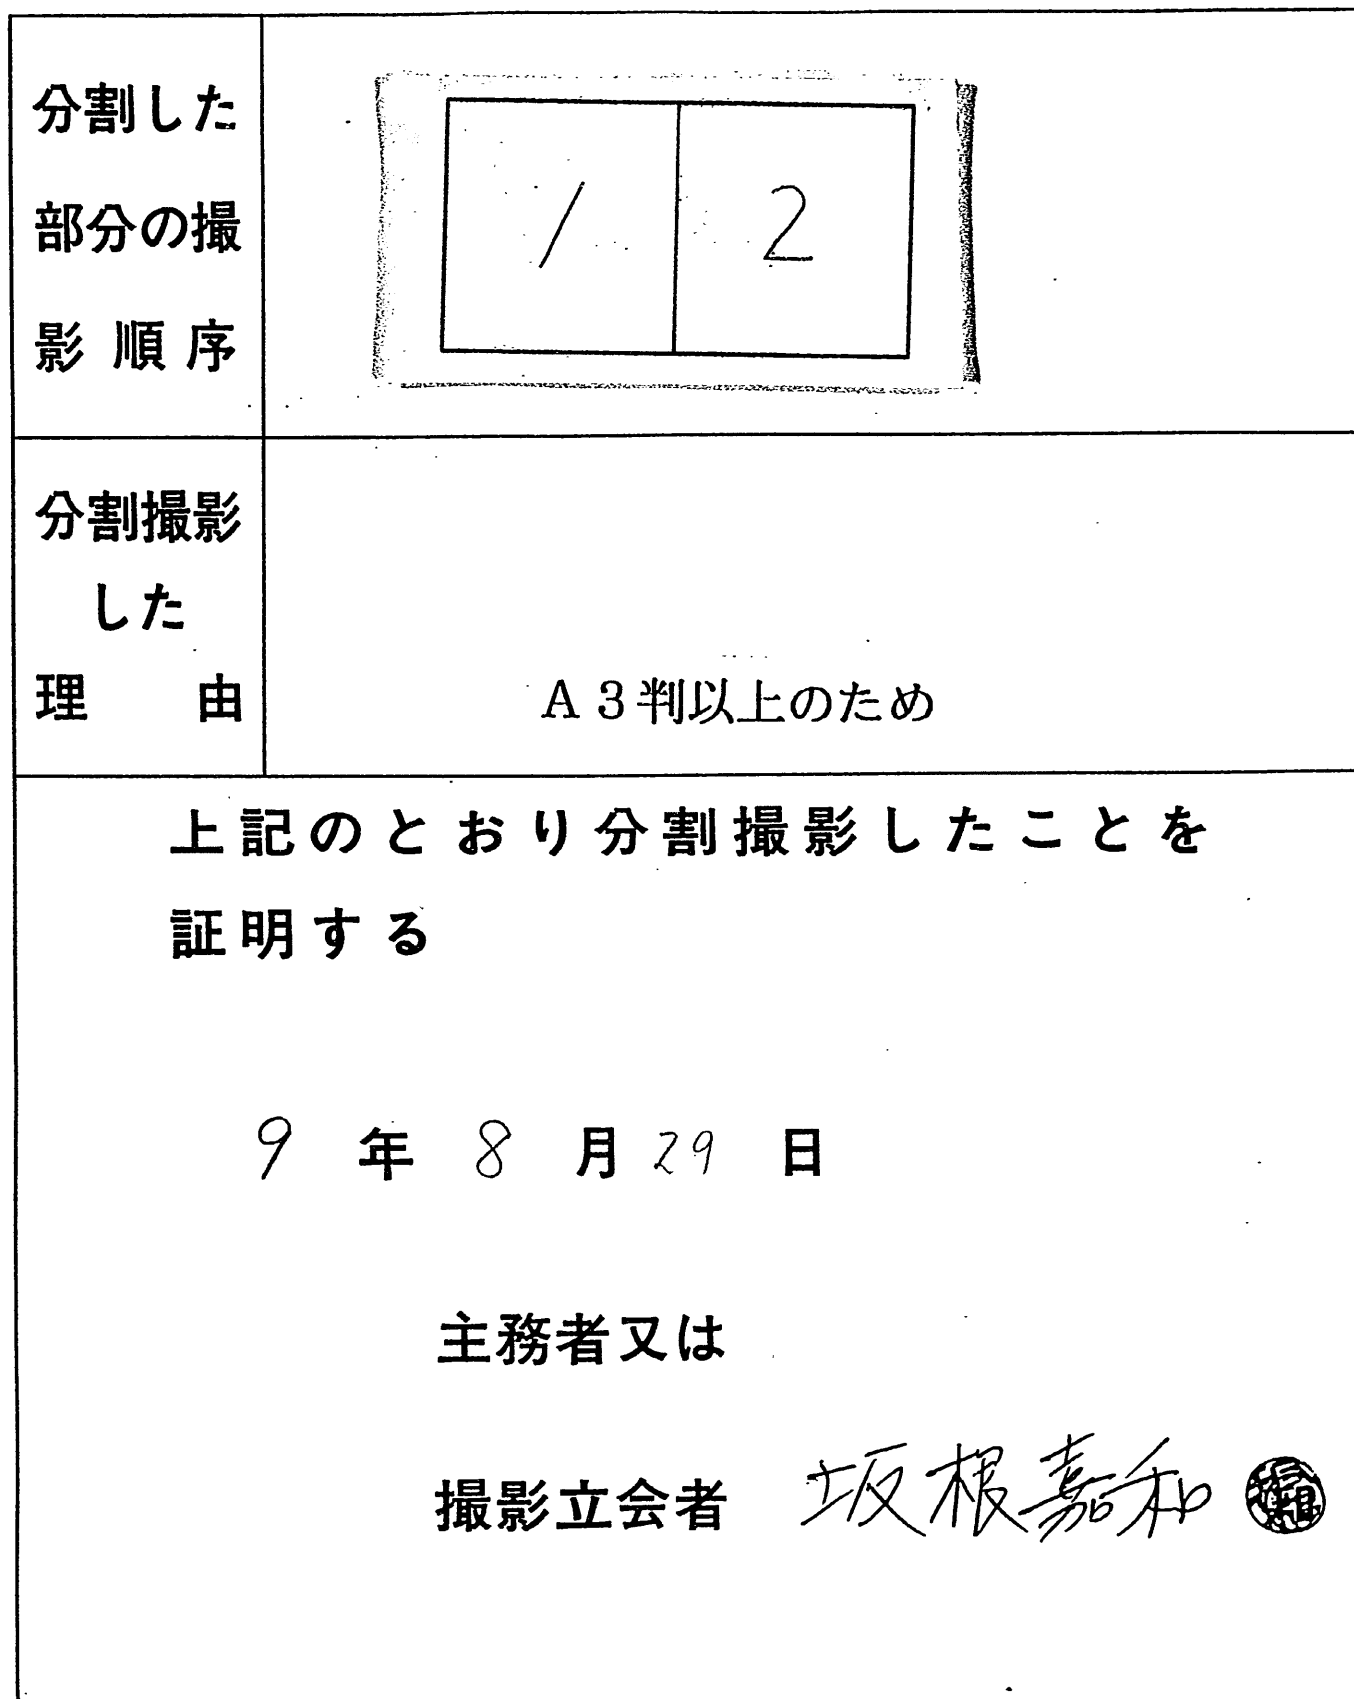 分割した
部分の撮
影順序
1 2
分割撮影
した
理由
A3判以上のため
上記のとおり分割撮影したことを
証明する
9年8月29日
主務者又は
撮影立会者 坂根嘉和